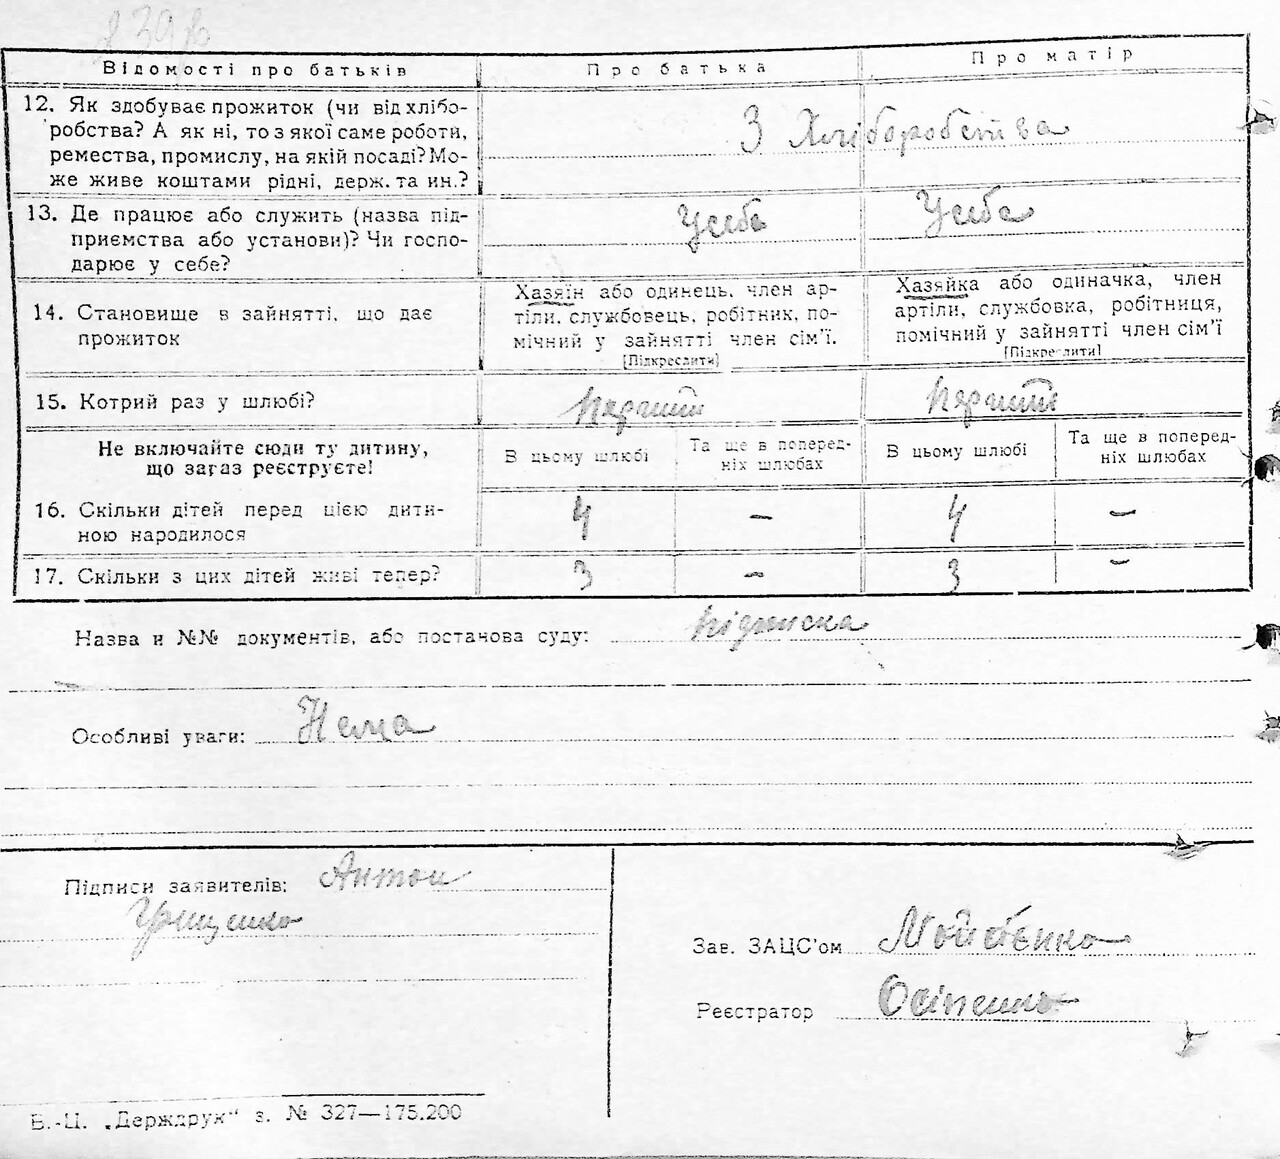 Відомості про батьків Про батька Про матір
12. Як здобуває прожиток (чи від хлібо-
робства? А як ні, то з якої саме роботи,
ремества, промислу, на якій посаді? Мо-
же живе коштами рідні, держ. та ин.?
З Хліборобства
13. Де працює або служить (назва під-
приємства або установи)? Чи госпо-
дарює у себе?
Усебе Усебе
14. Становище в зайнятті, що дає
прожиток
Хазяїн або одинець, член ар-
тіли, службовець, робітник, по-
мічний у зайнятті член сім'ї.
[Підкреслити]
Хазяйка або одиначка, член
артіли, службовка, робітниця,
помічний у зайнятті член сім'ї
[Підкреслити]
15. Котрий раз у шлюбі?
Не включайте сюди ту дитину,
що зараз реєструєте!
В цьому шлюбі
Та ще в поперед-
ніх шлюбах
В цьому шлюбі
Та ще в поперед-
ніх шлюбах
16. Скільки дітей перед цією дити-
ною народилося
4 – 4 –
17. Скільки з цих дітей живі тепер? 3 – 3 –
Назва и №№ документів, або постанова суду: підписка
Особливі уваги: Нема
Підписи заявителів: Антон
Грищенко
Зав. ЗАЦС'ом
Реєстратор Осіпенко
В.-Ц. „Держдрук" з. № 327—175.200